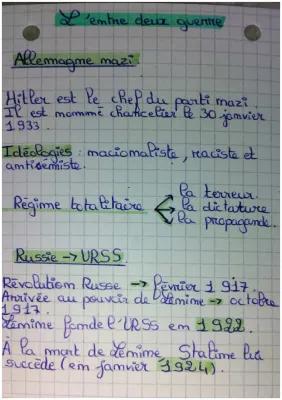 L'entre deux guerre
Allemagne nazi
Hitler est le chef du parti nazi.
Il est nommé chancelier le 30 janvier
1933.
Idéologies : nationaliste, raciste et
antisémiste.
la terreur.
Régime totalitaire la dictature
la propagande.
Russie → URSS
Révolution Russe → février 1917.
Arrivée au pouvoir de Lénine → octobre
1917.
Lénine fonde l'URSS en 1922.
À la mort de Lénine, Staline lui
succède (en janvier 1924).